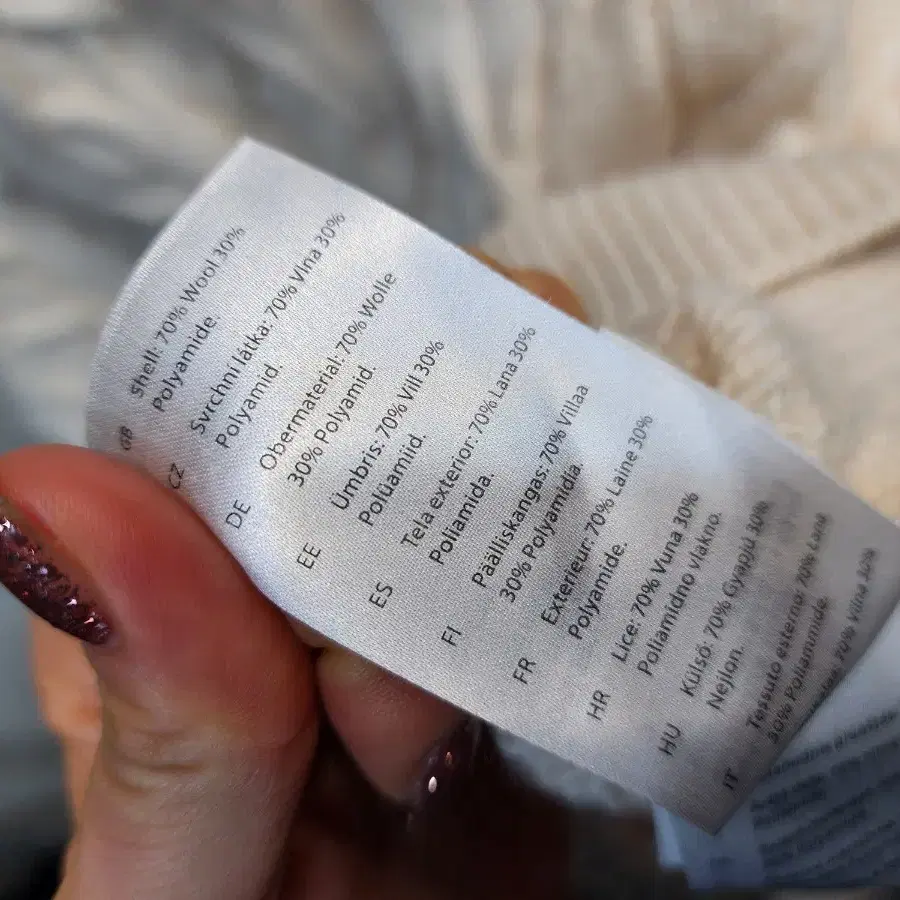 GB Shell: 70% Wool 30%
Polyamide.
CZ Svrchni látka: 70% Vlna 30%
Polyamid.
DE Obermaterial: 70% Wolle
30% Polyamid
EE Ümbris: 70% Vill 30%
Polüamiid.
ES Tela exterior: 70% Lana 30%
Poliamida.
FI Päälliskangas:70% Villaa
30% Polyamidia.
FR Exterieur: 70% Laine 30%
Polyamide.
HR Lice: 70% Vuna 30%
Poliamidno vlakno.
HU Külsö: 70% Gyapjú 30%
Nejlon.
IT Tessuto esterno: 70% Lana
30% Poliammide.
70% Vilna 30%